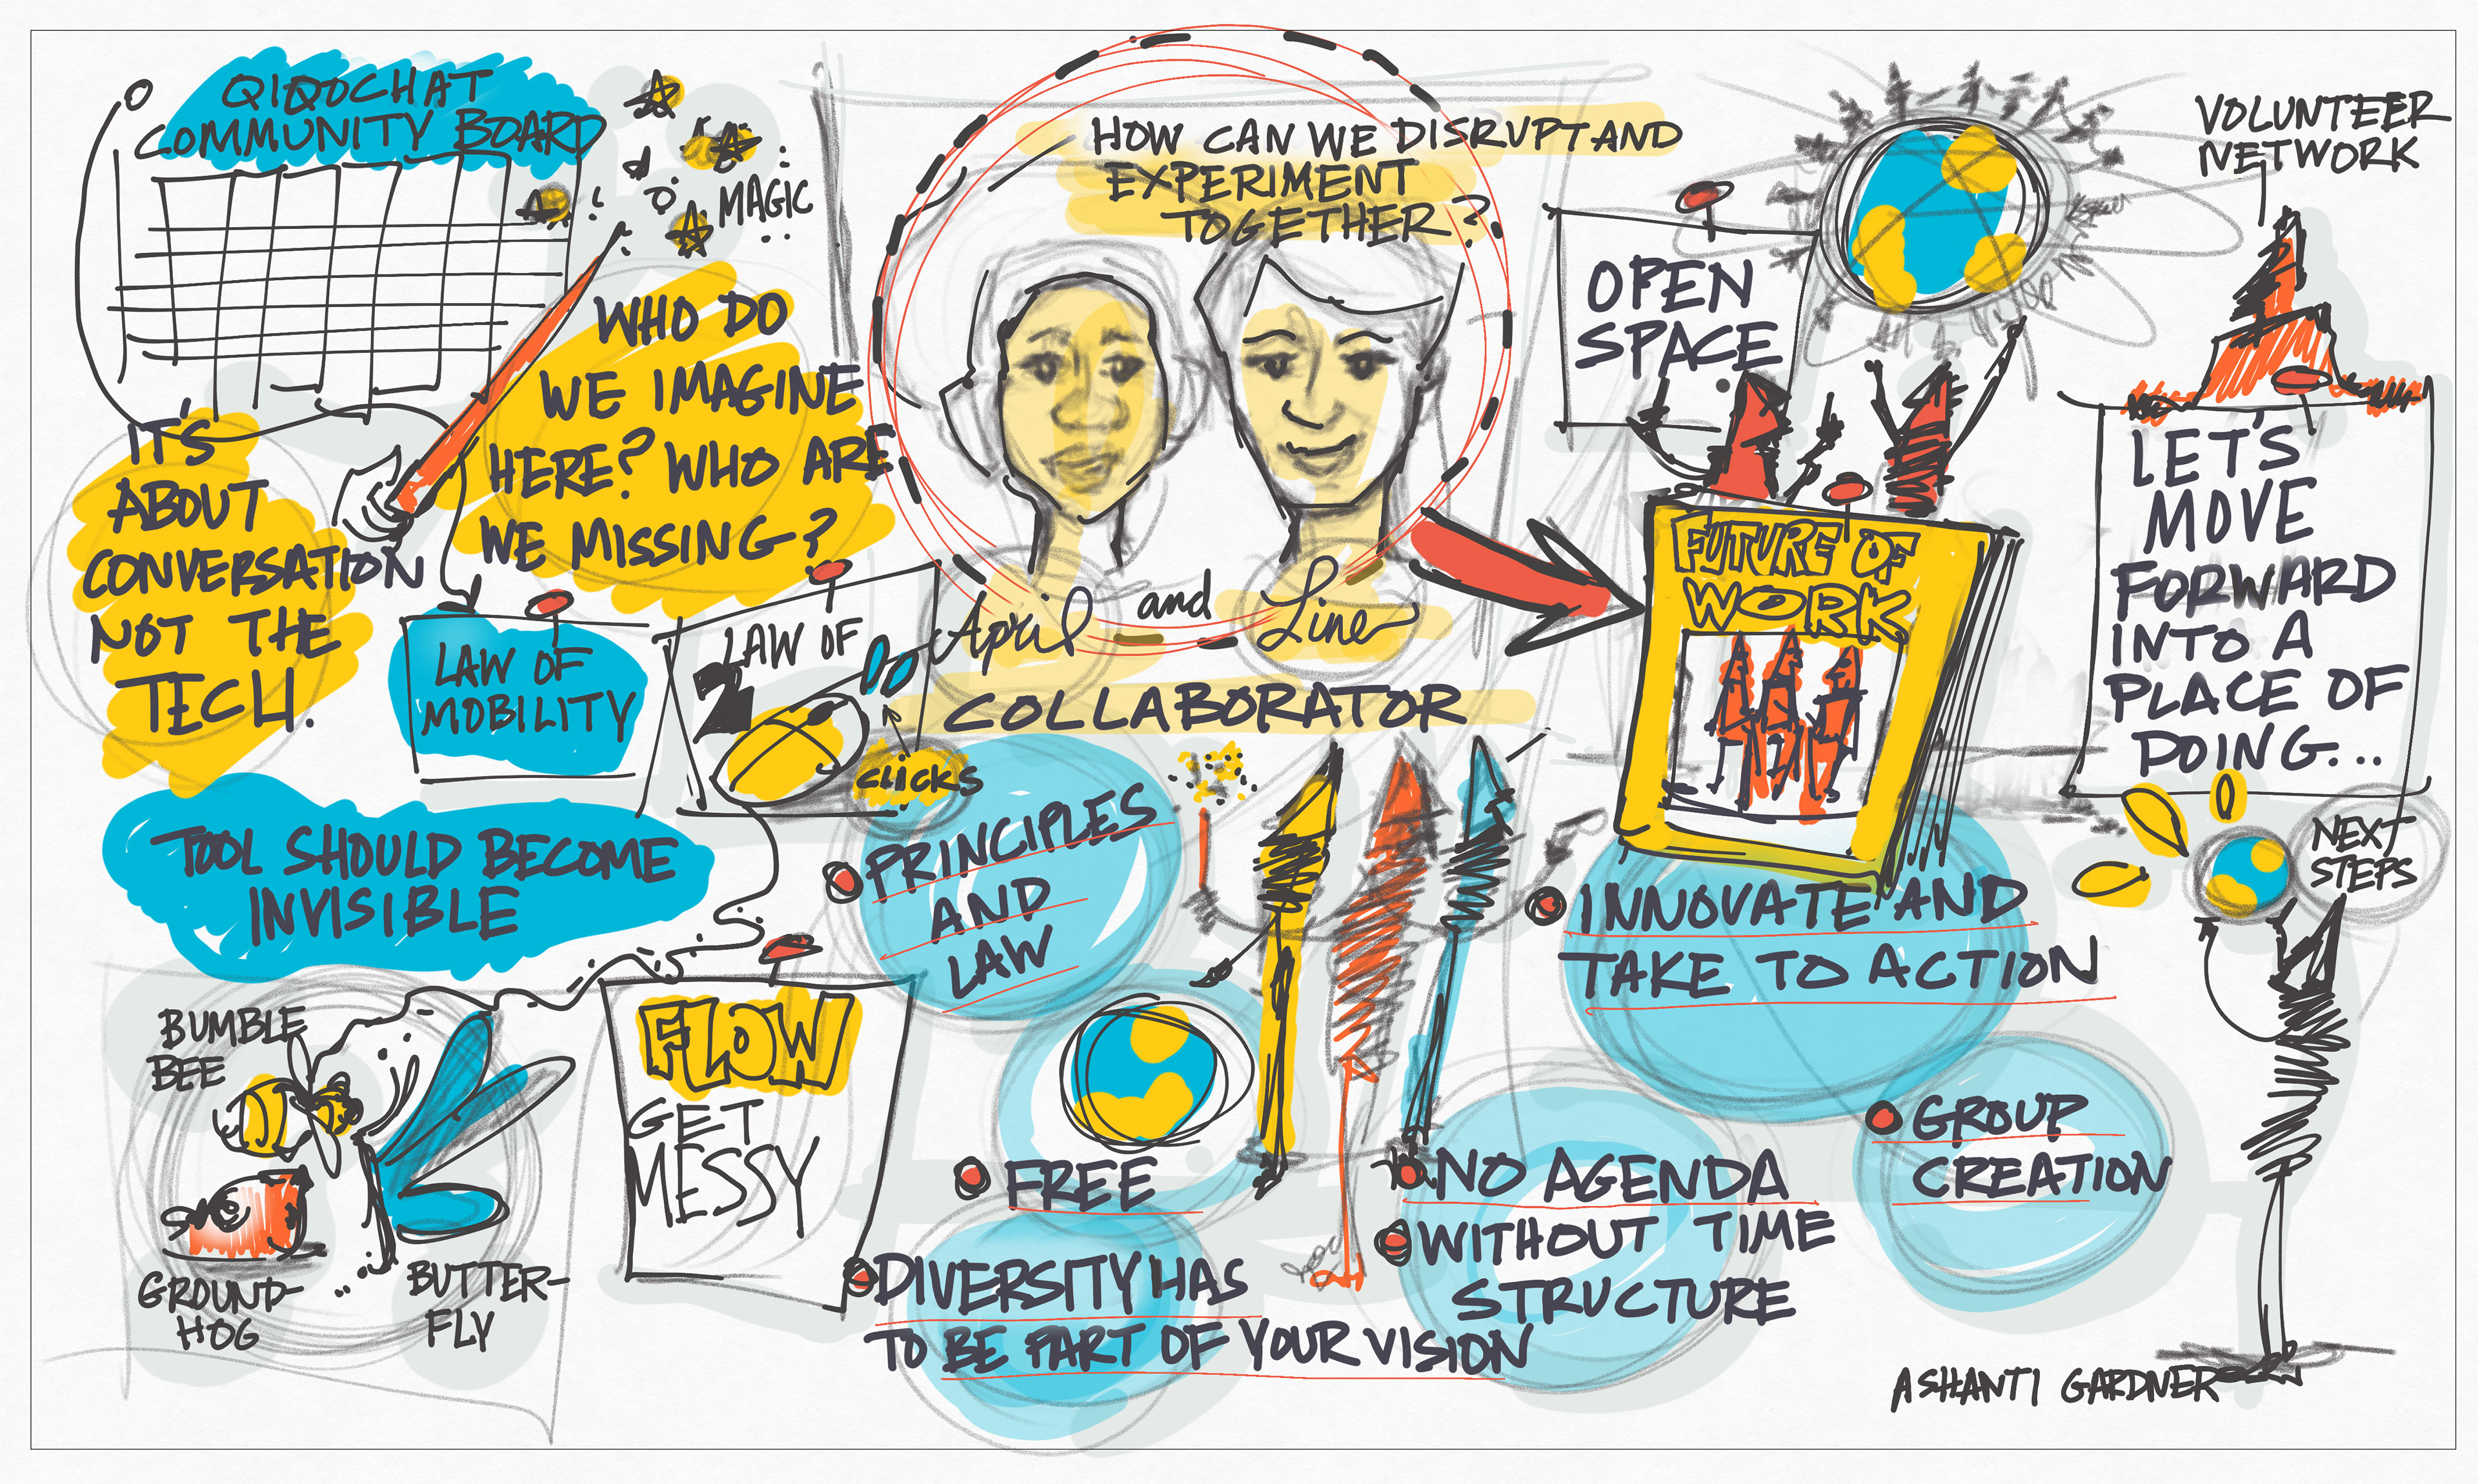 QIQOCHAT
COMMUNITY BOARD
MAGIC
WHO DO
WE IMAGINE
HERE? WHO ARE
WE MISSING?
IT'S
ABOUT
CONVERSATION
NOT THE
TECH.
LAW OF
MOBILITY
LAW OF
2
CLICKS
TOOL SHOULD BECOME
INVISIBLE
BUMBLE
BEE
GROUND-
HOG
BUTTER-
FLY
FLOW
GET
MESSY
HOW CAN WE DISRUPT AND
EXPERIMENT
TOGETHER?
April and Line
COLLABORATOR
PRINCIPLES
AND
LAW
FREE
DIVERSITY HAS
TO BE PART OF YOUR VISION
NO AGENDA
WITHOUT TIME
STRUCTURE
OPEN
SPACE
FUTURE OF
WORK
INNOVATE AND
TAKE TO ACTION
GROUP
CREATION
VOLUNTEER
NETWORK
LET'S
MOVE
FORWARD
INTO A
PLACE OF
DOING...
NEXT
STEPS
ASHANTI GARDNER